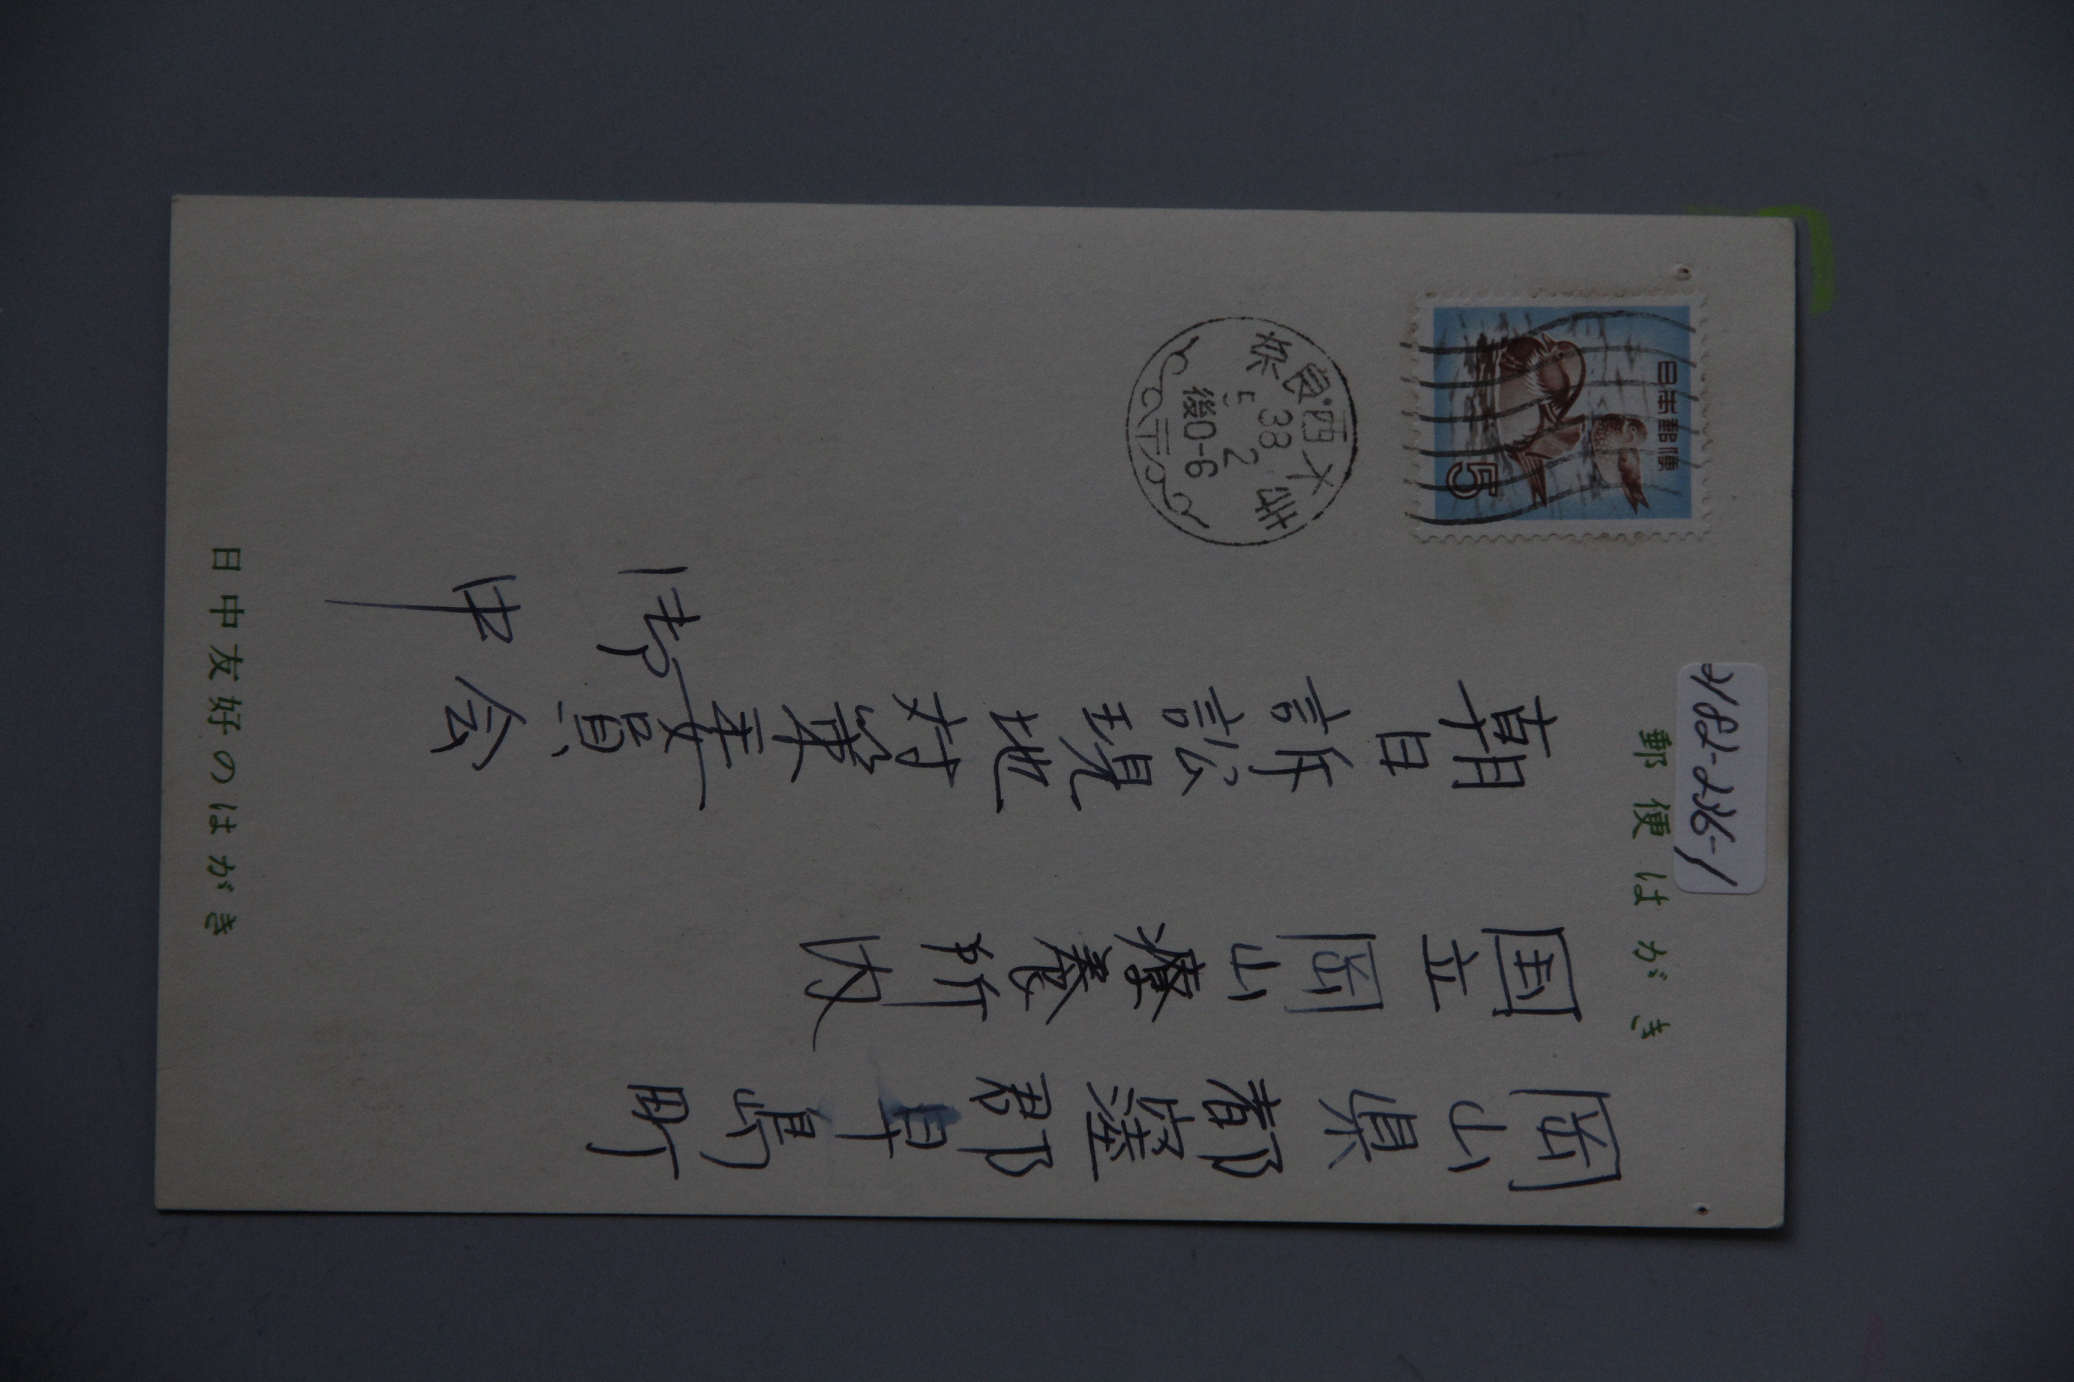 郵便はがき
日本郵便
5
奈良・西大寺
38
5 2
後0-6
岡山県都窪郡早島町
国立岡山療養所内
朝日訴訟現地対策委員会
御中
日中友好のはがき